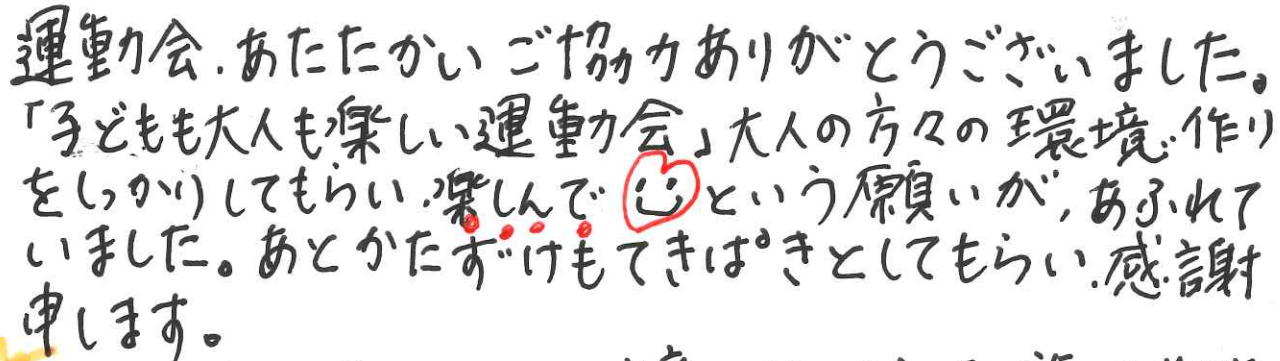 運動会、あたたかいご協力ありがとうございました。
「子どもも大人も楽しい運動会」大人の方々の環境作り
をしっかりしてもらい、楽しんでという願いが、あふれて
いました。あとかたずけもてきぱきとしてもらい、感謝
申します。